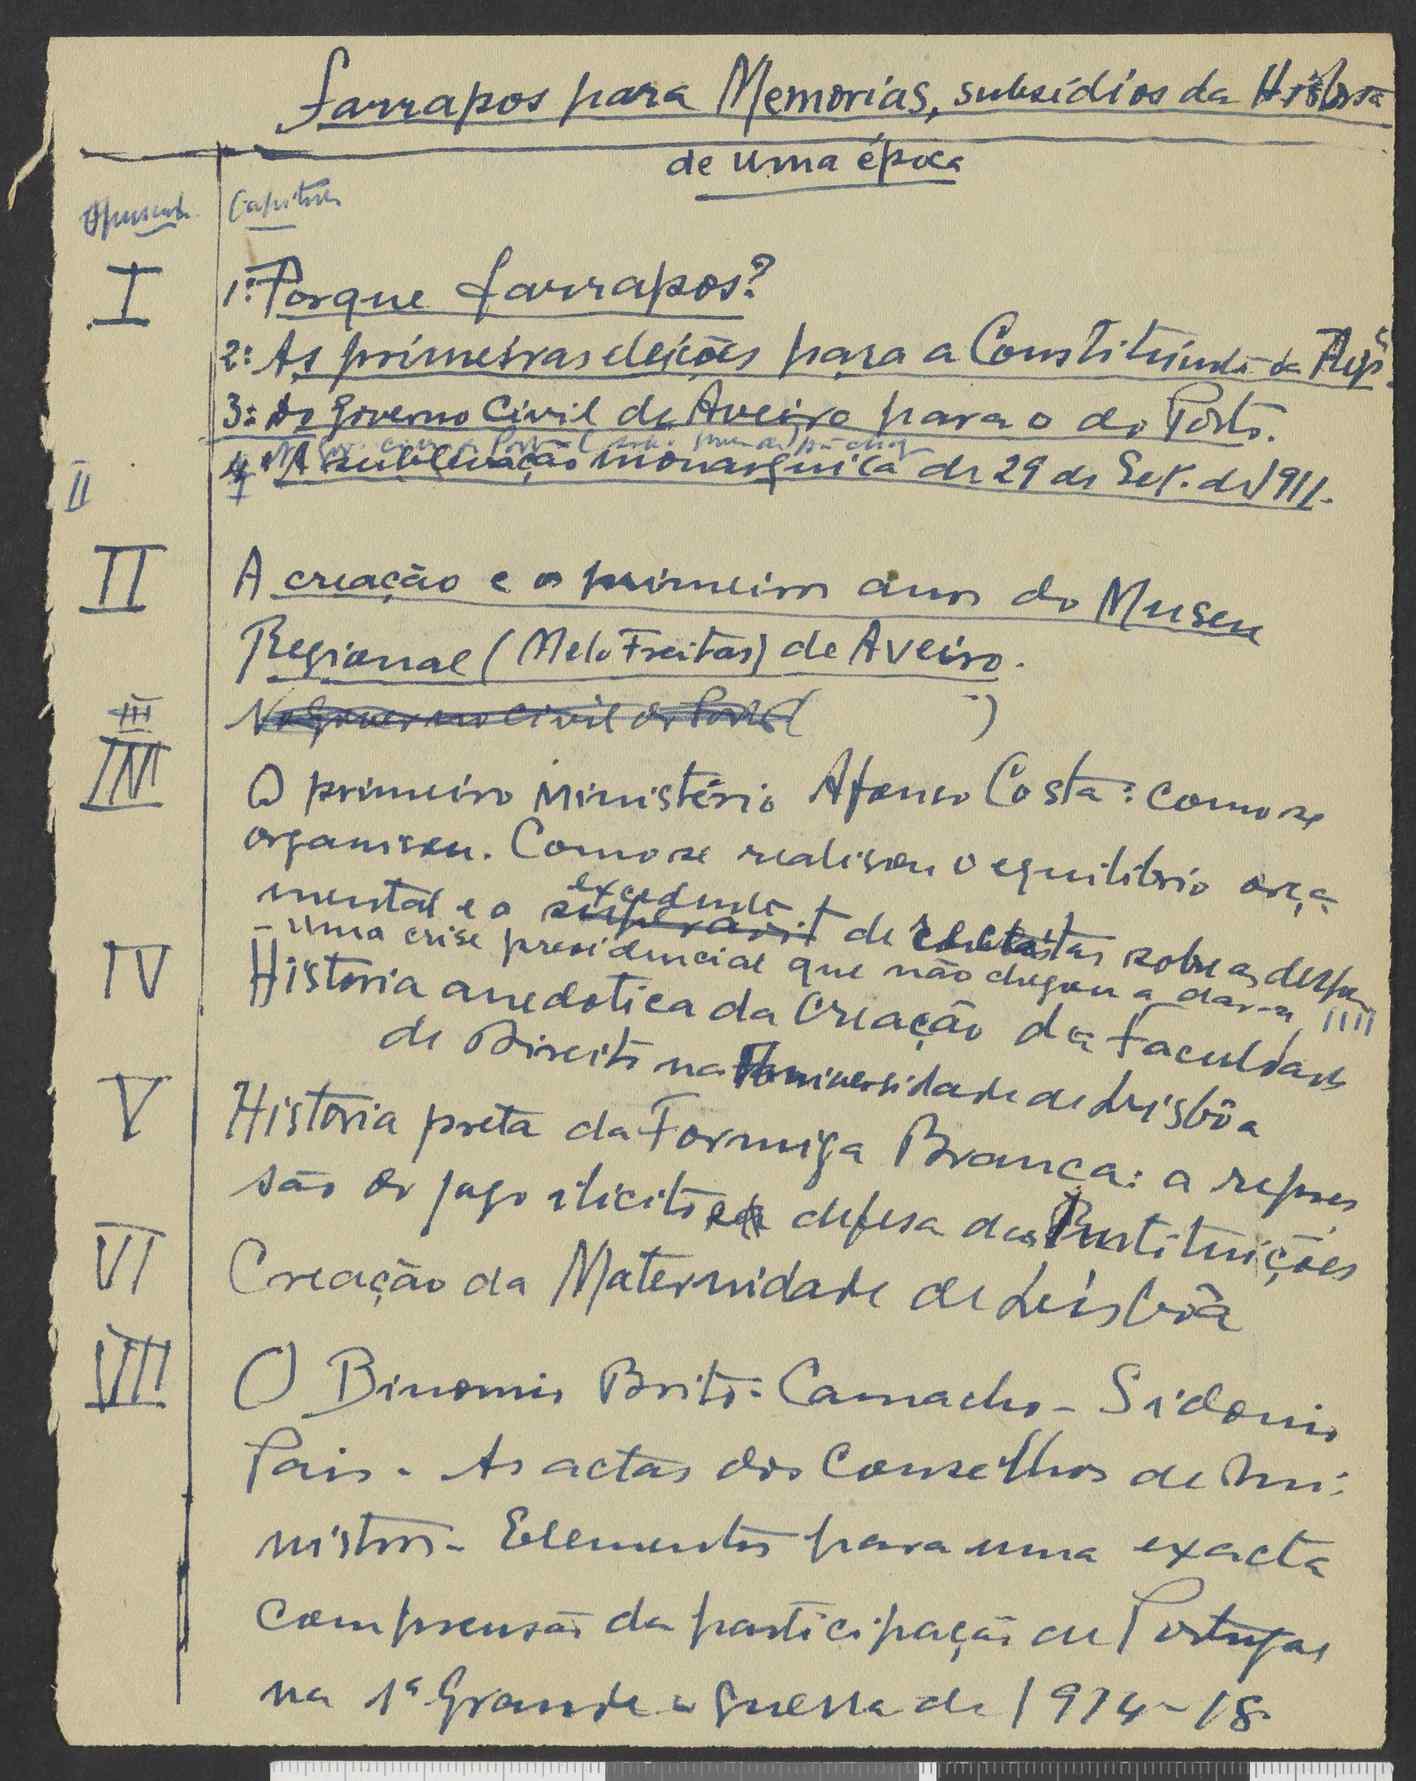 Farrapos para Memorias, subsídios da História
de uma época
Opuscul. Capitulos
I 1º Porque farrapos?
2º As primeiras eleições para a Constituinte da Repª.
3º Do Governo Civil de Aveiro para o do Porto.
II 4º A sublevação monarquica de 29 de Set. de 1911.
II A creação e os primeiros anos do Museu
Regional (Melo Freitas) de Aveiro.
III No Governo Civil do Porto ( )
III O primeiro Ministério Afonso Costa: como se
organisou. Como se realisou o equilibrio orça
excedente
mental e o superavit de receitas sobre as despesas
- uma crise presidencial que não chegou a dar-se !!!!
IV Historia anedotica da Creação da Faculdade
de Direito na Universidade de Lisbôa
V Historia preta da Formiga Branca: a repres
são do jogo ilicito e a defesa das Instituições
VI Creação da Maternidade de Lisbôa
VII O Binomio Brito-Camacho - Sidonio
Pais - As actas dos Conselhos de Mi-
nistros - Elementos para uma exacta
comprensão da participação de Portugal
na 1ª Grande Guerra de 1914-18.